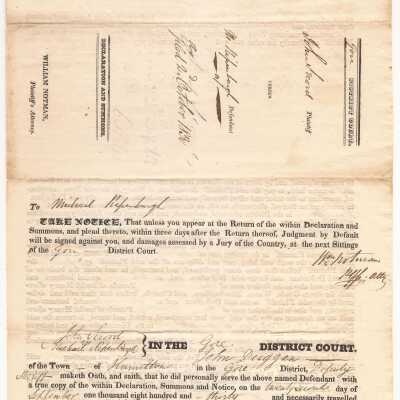 Gore DISTRICT COURT.
John Secord Plaintiff
VERSUS
Defendant
DECLARATION AND SUMMONS.
WILLIAM NOTMAN,
Plaintiff's Attorney.
To Michael
TAKE NOTICE, That unless you appear at the Return of the within Declaration and
Summons, and plead thereto, within three days after the Return thereof, Judgment by Default
will be signed against you, and damages assessed by a Jury of the Country, at the next Sittings
of the Gore District Court.
Wm Notman
Atty
John Secord
Michael
IN THE Gore DISTRICT COURT.
John Duggan
of the Town of Hamilton in the Gore District, Deputy
Sheriff maketh Oath, and saith, that he did personally serve the above named Defendant with
a true copy of the within Declaration, Summons and Notice, on the day of
September one thousand eight hundred and thirty and necessarily travelled